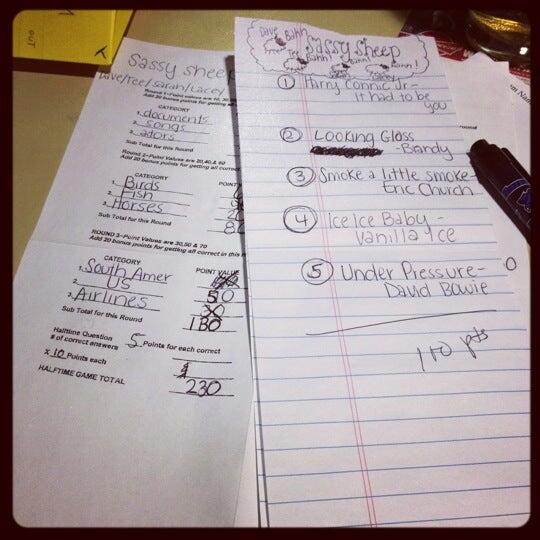 OUT
Sassy sheep
Dave/Tee/Sarah/Lacey
Round 1-Point values are 10, 30
Add 20 bonus points for getting
CATEGORY
1. documents
2. songs
3. actors
Sub Total for this Round
Round 2-Point Values are 20,40,& 60
Add 20 bonus points for getting all correct
CATEGORY
POINT
1. Birds
2. Fish
3. Horses
Sub Total for this Round
ROUND 3-Point Values are 30,50 & 70
Add 20 bonus points for getting all correct in this
CATEGORY
POINT VALUE
1. South Amer
2. US
3. Airlines
Sub Total for this Round
130
Halftime Question
# of correct answers
5 Points for each correct
x 10 Points each
HALFTIME GAME TOTAL
230
Dave Bahh
Tee Bahh! Bahh! Bahh!
Sassy sheep
1 Harry Connic Jr-
it had to be
you
2 Looking Glass
-Brandy
3 Smoke a little smoke-
Eric Church
4 Ice Ice Baby -
Vanilla Ice
5 Under Pressure-
David Bowie
110 pts